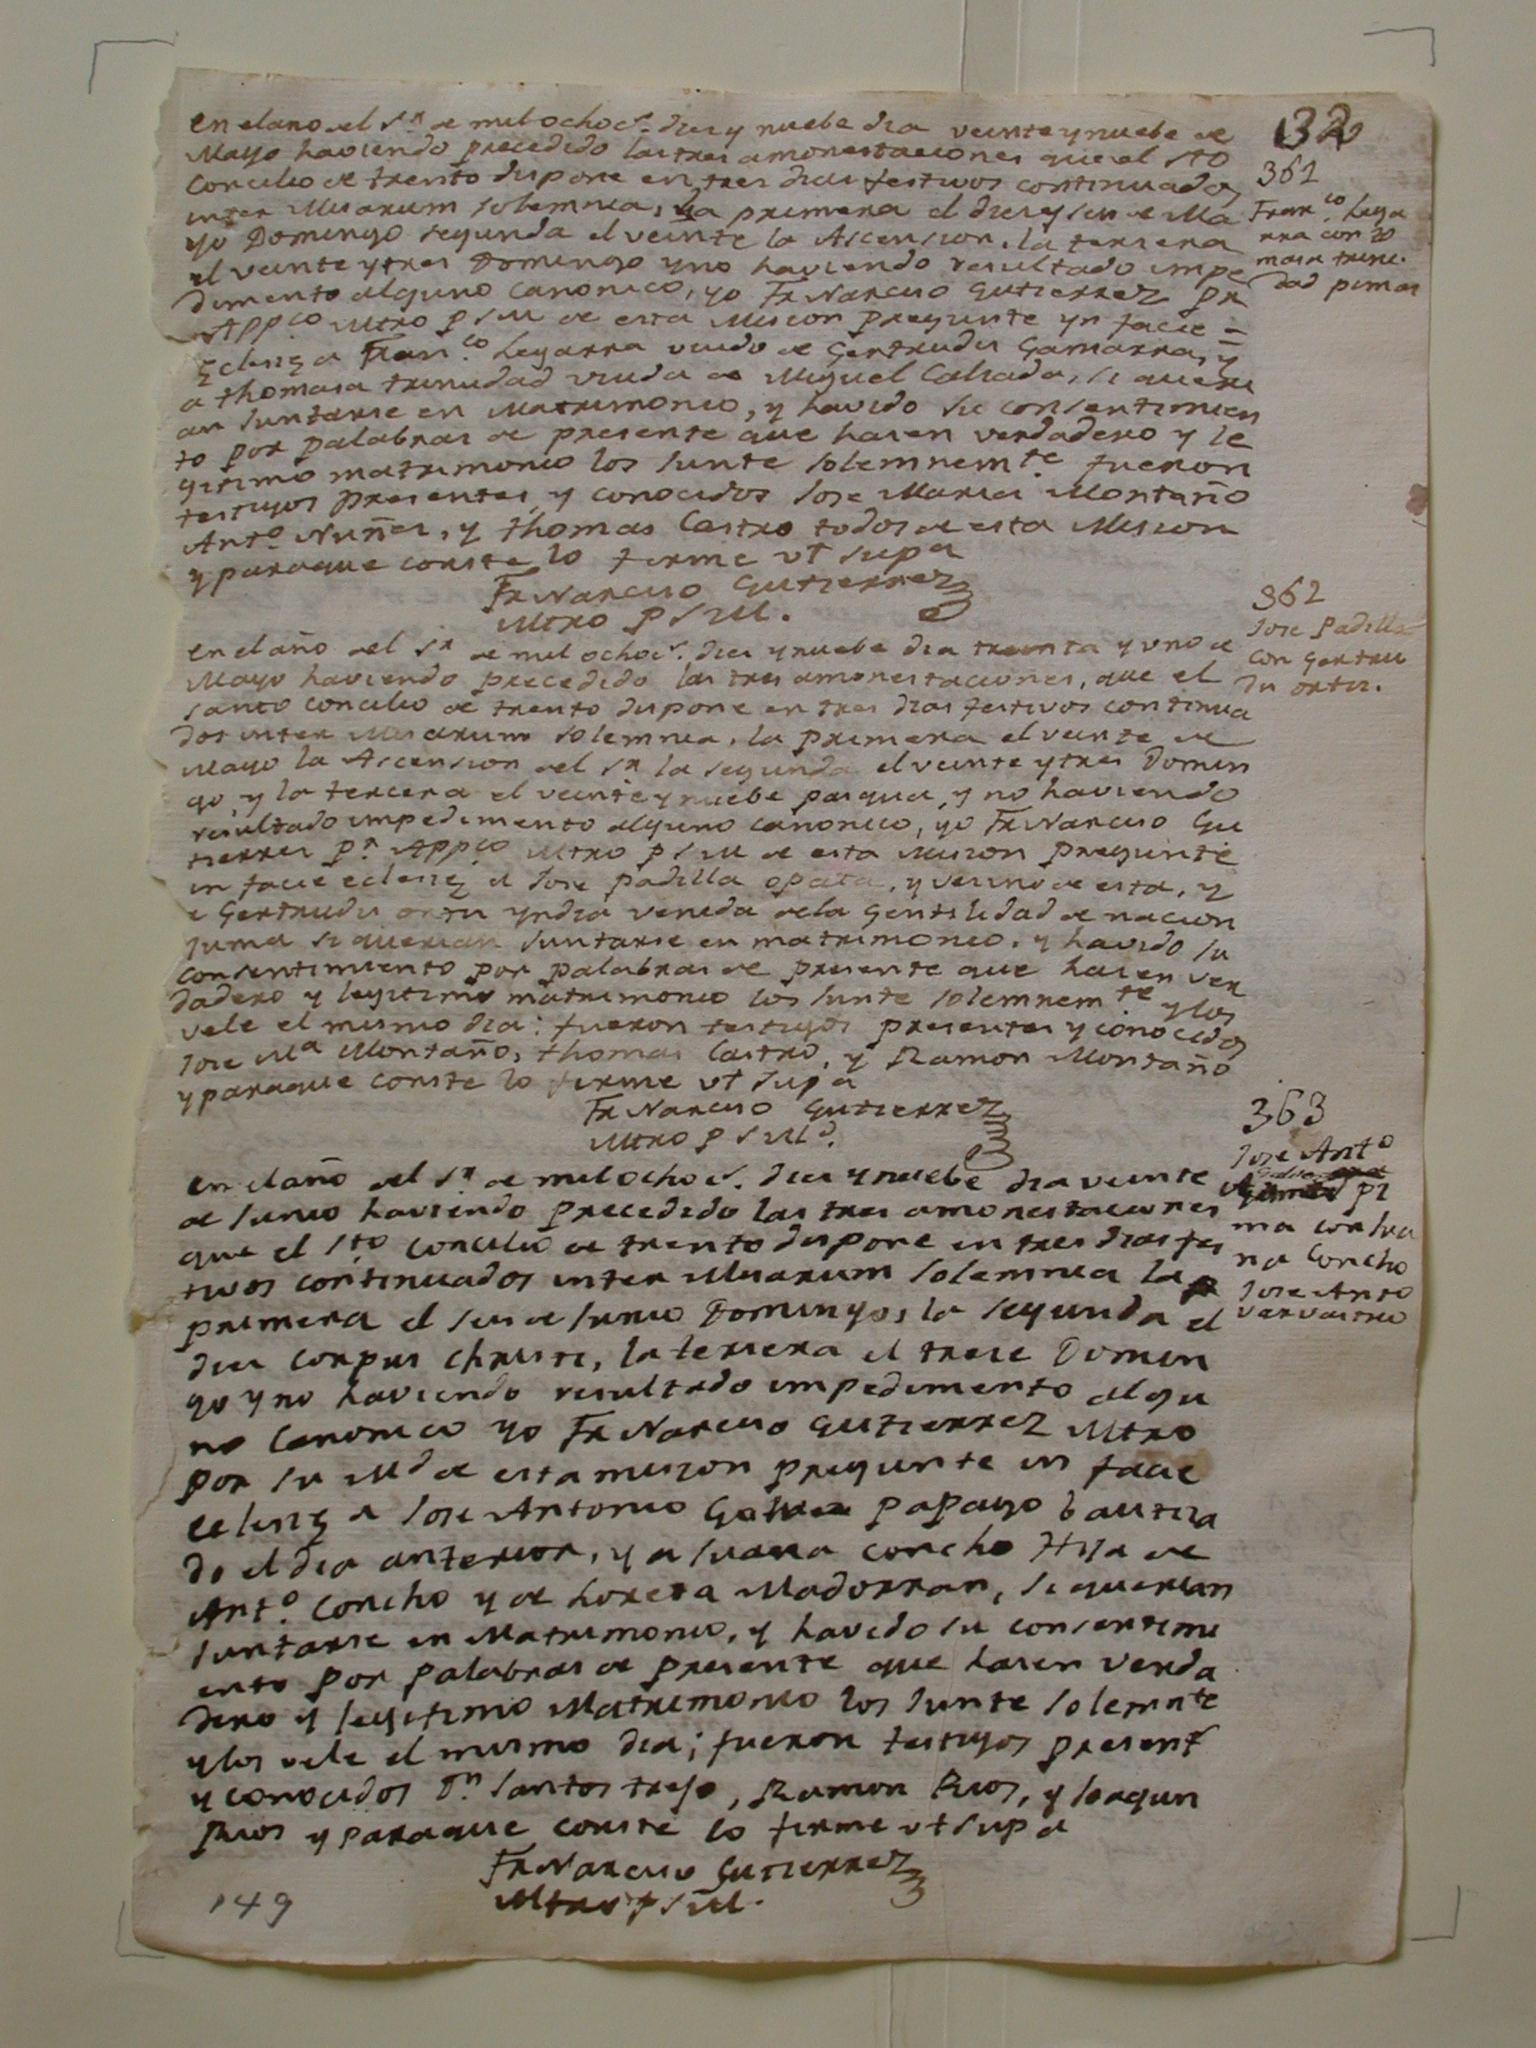 32
en el año del Sr de mil ochocs. dies y nuebe dia veinte y nuebe de
Mayo haviendo precedido las tres amonestaciones que el Sto
Concilio de trento dispone en tres dias festivos continuados
inter Misarum solemnia, la primera el dies y seis de Ma
yo Domingo segunda el veinte la Ascension, la tersera
el veinte y tres Domingo y no haviendo resultado impe
dimento alguno canonico, yo Fr Narciso Gutierrez pr
Appco Mtro p S M de esta Mision pregunte yn facie
Eclesiæ a Franco. Legarra viudo de Gertrudis Gamarra, y
a thomasa trinidad viuda de Miguel Calsada, si queri
an juntarse en Matrimonio, y havido su consentimien
to por palabras de presente que hasen verdadero y le
gitimo matrimonio los junte solemnemte fueron
testigos presentes, y conocidos Jose Maria Montaño
Anto. Nuñes, y thomas Castro todos de esta Mision
y paraque conste lo firme vt supa
Fr Narciso Gutierrez
Mtro p S M.
361
Franco. Lega
rra con to
masa trini.
dad pimas
en el año del Sr de mil ochocs. dies y nuebe dia treinta y uno de
Mayo haviendo precedido las tres amonestaciones, que el
santo concilio de trento dispone en tres dias festivos continua
dos inter Misarum solemnia, la primera el veinte de
Mayo la Ascension del Sr la segunda el veinte y tres Domin
go, y la tercera el veinte y nuebe pasqua, y no haviendo
resultado impedimento alguno canonico, yo Fr Narciso Gu
tierres Pr. Appco Mtro p S M de esta Mision pregunte
in facie eclesiæ a Jose padilla opata, y vesino de esta, y
a Gertrudis ortis yndia venida de la Gentilidad de nacion
yuma si querian juntarse en matrimonio, y havido su
consentimiento por palabras de presente que hasen ver
dadero y legitimo matrimonio los junte solemnemte y los
vele el mismo dia: fueron testigos presentes y conocidos
Jose Ma Montaño, thomas Castro, y Ramon Montaño
y paraque conste lo firme vt supa
Fr Narciso Gutierrez
Mtro p S Md.
362
Jose Padilla
con Gertru
dis ortis.
en el año del Sr. de mil ochocs. dies y nuebe dia veinte
de Junio haviendo precedido las tres amonestaciones
que el Sto concilio de trento dispone en tres dias fes
tivos continuados inter Misarum solemnia la
primera el seis de Junio Domingo, la segunda el
dies corpus christi, la tersera el trese Domin
go y no haviendo resultado impedimento algu
no Canonico yo Fr Narciso Gutierrez Mtro
por su Md de esta mision pregunte in facie
eclesiæ a Jose Antonio papago bautisa
do el dia anterior, y a Juana concho Hija de
Anto. Concho y de Loreta Madorran, si querian
juntarse en Matrimonio, y havido su consentimi
ento por palabras de presente que hasen verda
dero y legitimo Matrimonio los junte solemnte
y los vele el mismo dia; fueron testigos present
y conocidos Dn. Santos trejo, Ramon Rios, y Joaquin
Rios y paraque conste lo firme vt supa
Fr Narciso Gutierrez
Mtro p S M.
363
Jose Anto
pi
ma con Jua
na Concho
Jose Anto
149